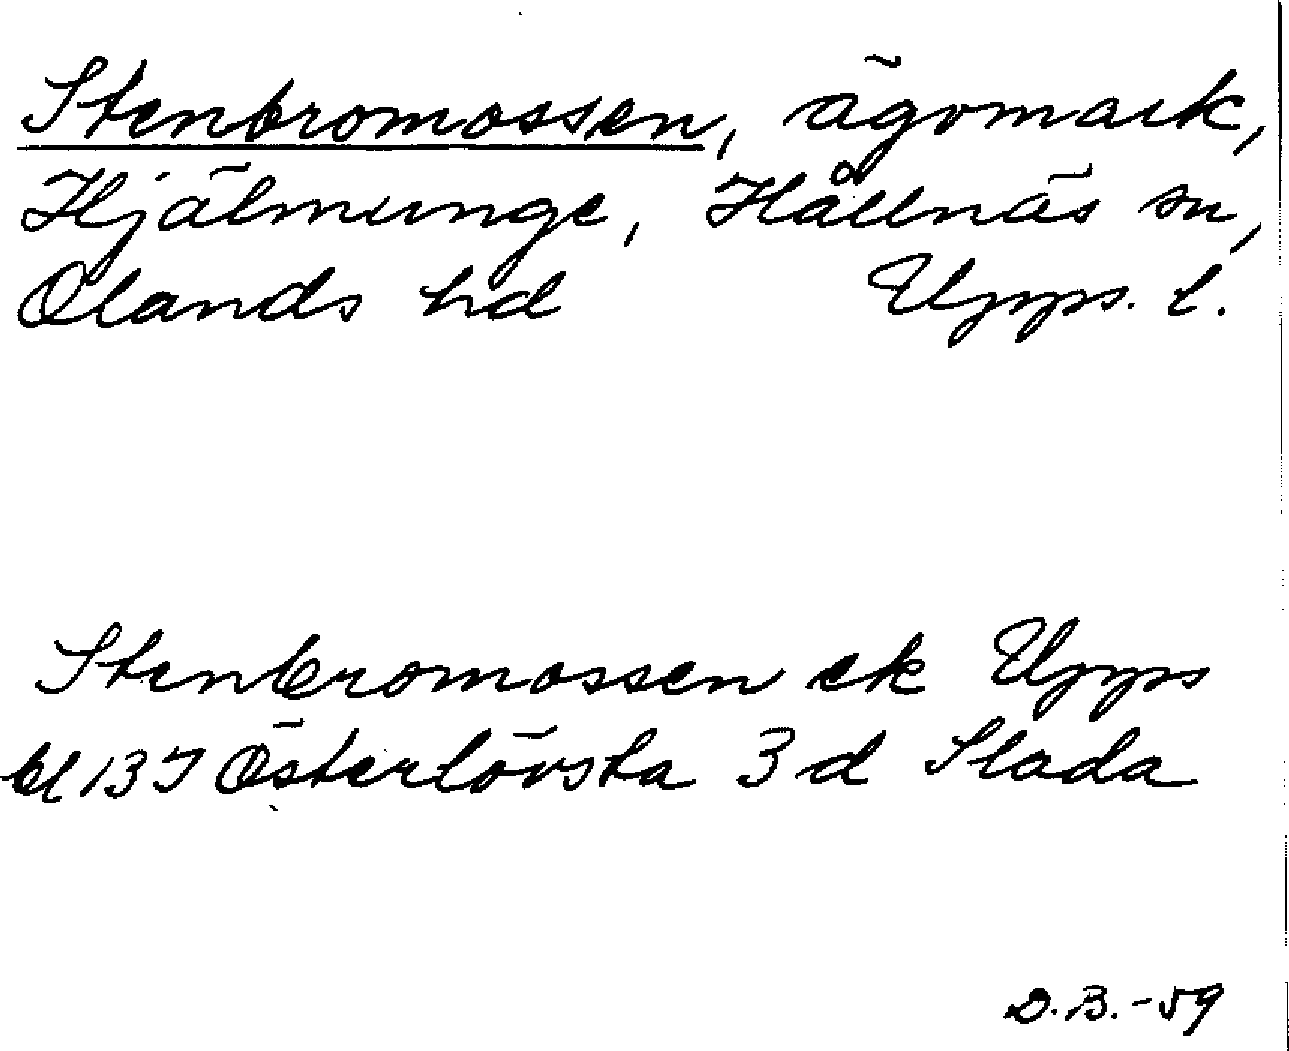 Stenbromossen, ägomark,
Hjälmunge, Hållnäs sn,
Olands hd Upps. l.
Stenbromossen ek Upps
bl 13I Österlövsta 3d Slada
D.B.-59